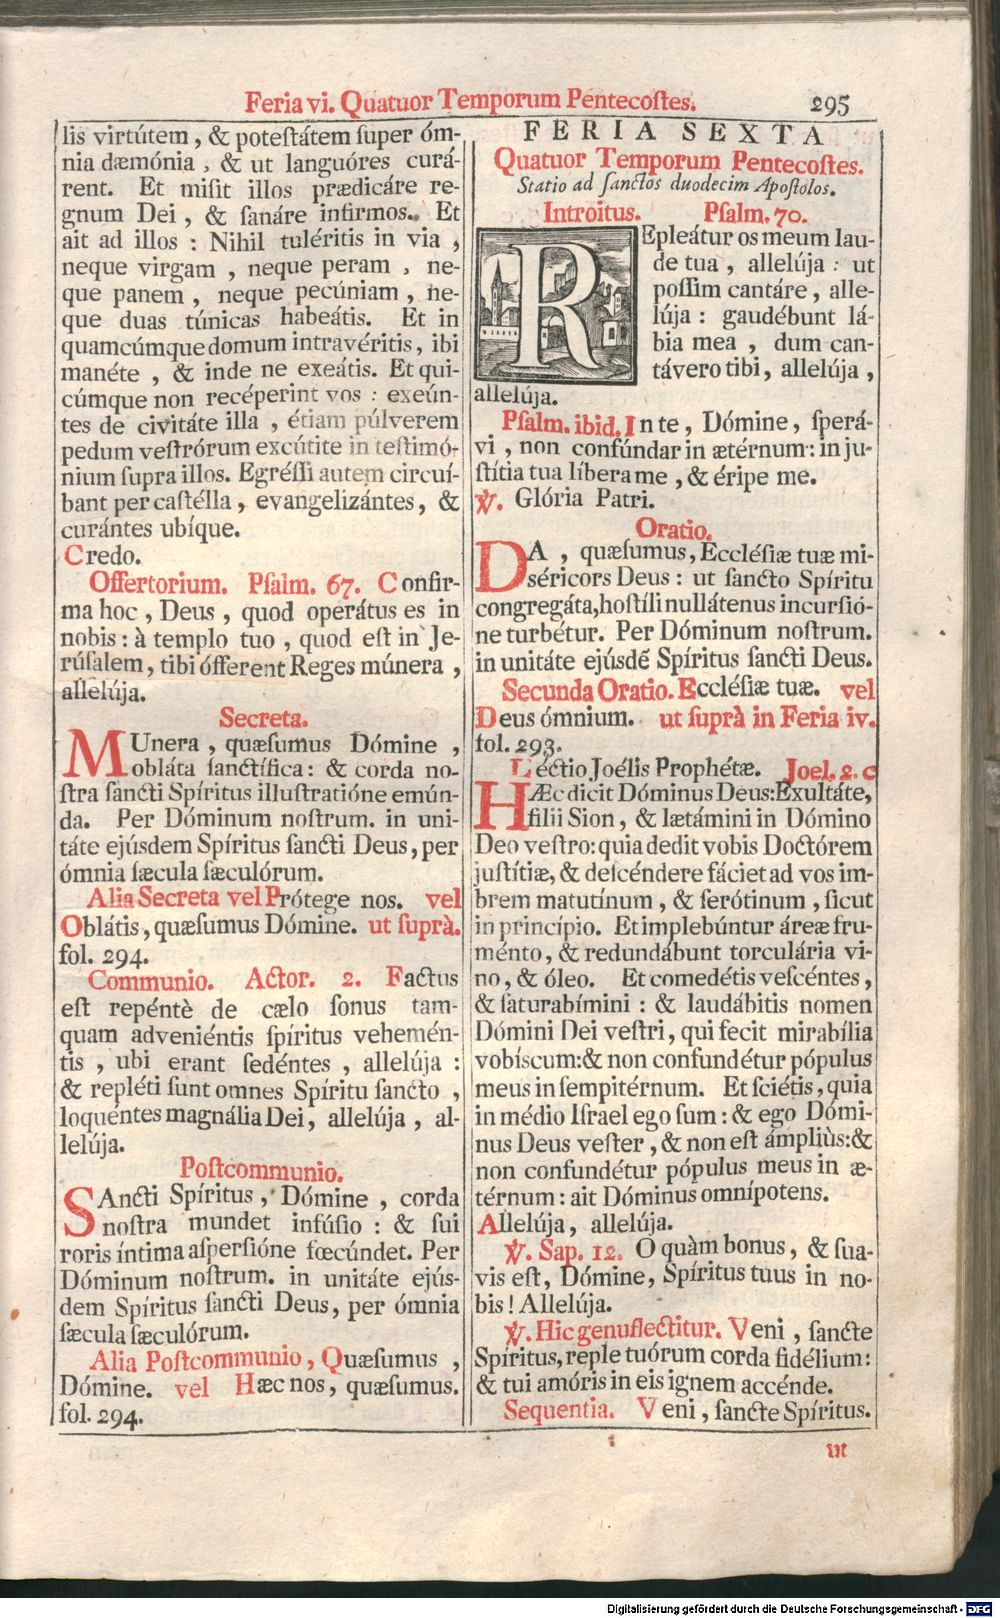 Feria vi. Quatuor Temporum Pentecoſtes. 295
lis virtútem, & poteſtátem ſuper óm-
nia dæmónia, & ut languóres curá-
rent. Et miſit illos prædicáre re-
gnum Dei, & ſanáre infirmos. Et
ait ad illos : Nihil tuléritis in via ,
neque virgam , neque peram , ne-
que panem , neque pecúniam , ne-
que duas túnicas habeátis. Et in
quamcúmque domum intravéritis, ibi
manéte , & inde ne exeátis. Et qui-
cúmque non recéperint vos : exeún-
tes de civitáte illa , étiam púlverem
pedum veſtrórum excútite in teſtimó-
nium ſupra illos. Egréſſi autem circuí-
bant per caſtélla, evangelizántes, &
curántes ubíque.
Credo.
Offertorium. Pſalm. 67. Confir-
ma hoc , Deus , quod operátus es in
nobis : à templo tuo , quod eſt in Je-
rúſalem, tibi ófferent Reges múnera ,
allelúja.
Secreta.
MUnera , quæſumus Dómine ,
obláta ſanctífica: & corda no-
ſtra ſancti Spíritus illuſtratióne emún-
da. Per Dóminum noſtrum. in uni-
táte ejúsdem Spíritus ſancti Deus, per
ómnia ſæcula ſæculórum.
Alia Secreta vel Prótege nos. vel
Oblátis, quæſumus Dómine. ut ſuprà.
fol. 294.
Communio. Actor. 2. Factus
eſt repéntè de cælo ſonus tam-
quam adveniéntis ſpíritus vehemén-
tis , ubi erant ſedéntes , allelúja :
& repléti ſunt omnes Spíritu ſancto ,
loquéntes magnália Dei, allelúja , al-
lelúja.
Poſtcommunio.
SAncti Spíritus, Dómine , corda
noſtra mundet infúſio : & ſui
roris íntima aſperſióne fœcúndet. Per
Dóminum noſtrum. in unitáte ejús-
dem Spíritus ſancti Deus, per ómnia
ſæcula ſæculórum.
Alia Poſtcommunio, Quæſumus ,
Dómine. vel Hæc nos, quæſumus.
fol. 294.
FERIA SEXTA
Quatuor Temporum Pentecoſtes.
Statio ad ſanctos duodecim Apoſtolos.
Introitus. Pſalm. 70.
REpleátur os meum lau-
de tua , allelúja : ut
poſſim cantáre, alle-
lúja : gaudébunt lá-
bia mea , dum can-
távero tibi, allelúja ,
allelúja.
Pſalm. ibid. In te, Dómine, ſperá-
vi , non confúndar in ætérnum: in ju-
ſtítia tua líbera me , & éripe me.
℣. Glória Patri.
Oratio.
DA , quæſumus, Eccléſiæ tuæ mi-
séricors Deus : ut ſancto Spíritu
congregáta, hoſtíli nullátenus incurſió-
ne turbétur. Per Dóminum noſtrum.
in unitáte ejúsdẽ Spíritus ſancti Deus.
Secunda Oratio. Eccléſiæ tuæ. vel
Deus ómnium. ut ſuprà in Feria iv.
fol. 293.
Léctio Joélis Prophétæ. Joel. 2. c
HÆc dicit Dóminus Deus: Exultáte,
filii Sion , & lætámini in Dómino
Deo veſtro: quia dedit vobis Doctórem
juſtítiæ, & deſcéndere fáciet ad vos im-
brem matutínum , & ſerótinum , ſicut
in princípio. Et implebúntur áreæ fru-
ménto, & redundábunt torculária vi-
no, & óleo. Et comedétis veſcéntes ,
& ſaturabímini : & laudábitis nomen
Dómini Dei veſtri, qui fecit mirabília
vobíscum: & non confundétur pópulus
meus in ſempitérnum. Et ſciétis, quia
in médio Iſrael ego ſum : & ego Dómi-
nus Deus veſter , & non eſt ámpliùs: &
non confundétur pópulus meus in æ-
térnum : ait Dóminus omnípotens.
Allelúja, allelúja.
℣. Sap. 12. O quàm bonus, & ſua-
vis eſt, Dómine, Spíritus tuus in no-
bis ! Allelúja.
℣. Hic genuflectitur. Veni , ſancte
Spíritus, reple tuórum corda fidélium:
& tui amóris in eis ignem accénde.
Sequentia. Veni, ſancte Spíritus.
Digitalisierung gefördert durch die Deutsche Forschungsgemeinschaft - DFG